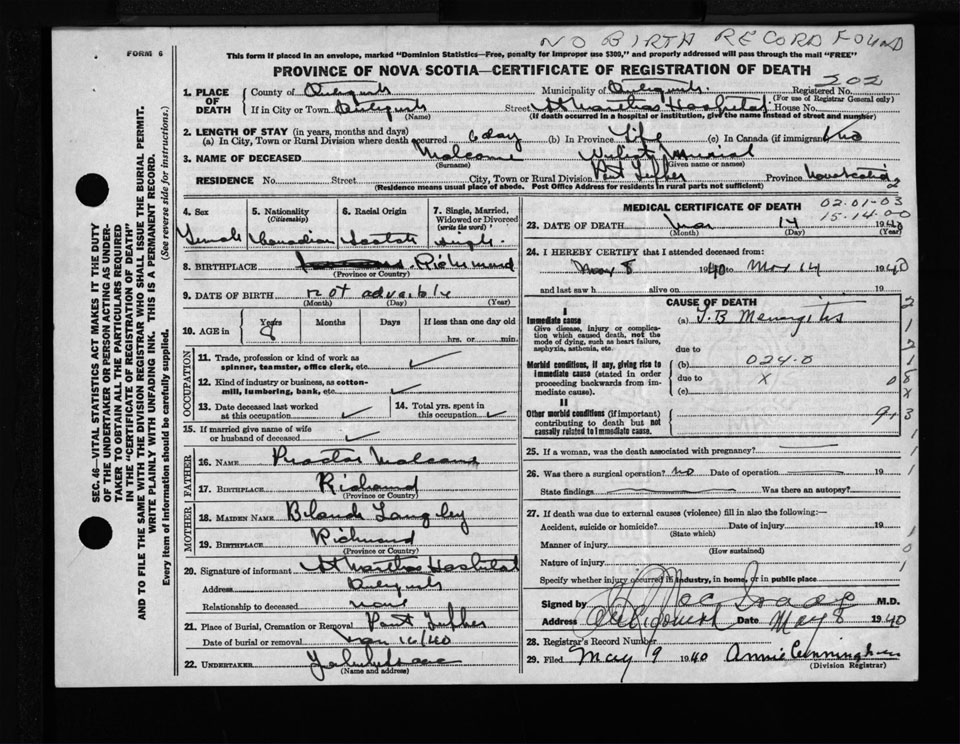 NO BIRTH RECORD FOUND
FORM 6
This form if placed in an envelope, marked "Dominion Statistics—Free, penalty for improper use $300," and properly addressed will pass through the mail "FREE"
PROVINCE OF NOVA SCOTIA—CERTIFICATE OF REGISTRATION OF DEATH
202
1. PLACE OF DEATH
County of Municipality of Registered No.
(For use of Registrar General only)
If in City or Town Street St Marthas Hospital House No.
(Name) (If death occurred in a hospital or institution, give the name instead of street and number)
2. LENGTH OF STAY (in years, months and days)
(a) In City, Town or Rural Division where death occurred 6 day (b) In Province Life (c) In Canada (if immigrant)
3. NAME OF DECEASED Malcome Muriel
(Surname) (Given name or names)
RESIDENCE No. Street City, Town or Rural Division Port Province Nova Scotia
(Residence means usual place of abode. Post Office Address for residents in rural parts not sufficient)
4. Sex 5. Nationality (Citizenship) 6. Racial Origin 7. Single, Married, Widowed or Divorced (write the word)
Female Canadian Scotch Single
8. BIRTHPLACE Richmond
(Province or Country)
9. DATE OF BIRTH not
(Month) (Day) (Year)
10. AGE in Years Months Days If less than one day old
8 hrs. or min.
OCCUPATION
11. Trade, profession or kind of work as spinner, teamster, office clerk, etc. ✓
12. Kind of industry or business, as cotton-mill, lumbering, bank, etc. ✓
13. Date deceased last worked at this occupation ✓ 14. Total yrs. spent in this occupation ✓
15. If married give name of wife or husband of deceased ✓
FATHER
16. NAME Proctor Malcome
17. BIRTHPLACE Richmond
(Province or Country)
MOTHER
18. MAIDEN NAME Langley
19. BIRTHPLACE Richmond
(Province or Country)
20. Signature of informant St Marthas Hospital
Address
Relationship to deceased none
21. Place of Burial, Cremation or Removal Port
Date of burial or removal 16/40
22. UNDERTAKER
(Name and address)
MEDICAL CERTIFICATE OF DEATH 02-01-03
15-14-00
23. DATE OF DEATH 14 1940
(Month) (Day) (Year)
24. I HEREBY CERTIFY that I attended deceased from:
8 1940 to 14 1940
and last saw h alive on 19
CAUSE OF DEATH
I
Immediate cause (a) T.B Meningitis
Give disease, injury or complication which caused death, not the mode of dying, such as heart failure, asphyxia, asthenia, etc.
due to
Morbid conditions, if any, giving rise to immediate cause (stated in order proceeding backwards from immediate cause).
(b) 024-0
due to X
(c)
II
Other morbid conditions (if important) contributing to death but not causally related to immediate cause.
25. If a woman, was the death associated with pregnancy?
26. Was there a surgical operation? no Date of operation 19
State findings Was there an autopsy?
27. If death was due to external causes (violence) fill in also the following:—
Accident, suicide or homicide? Date of injury 19
(State which)
Manner of injury
(How sustained)
Nature of injury
Specify whether injury occurred in industry, in home, or in public place
Signed by M.D.
Address Date May 8 1940
28. Registrar's Record Number
29. Filed May 9 1940 Annie Cunningham
(Division Registrar)
SEC. 46—VITAL STATISTICS ACT MAKES IT THE DUTY
OF THE UNDERTAKER OR PERSON ACTING AS UNDER-
TAKER TO OBTAIN ALL THE PARTICULARS REQUIRED
IN THE "CERTIFICATE OF REGISTRATION OF DEATH"
AND TO FILE THE SAME WITH THE DIVISION REGISTRAR WHO SHALL ISSUE THE BURIAL PERMIT.
WRITE PLAINLY WITH UNFADING INK. THIS IS A PERMANENT RECORD.
Every item of information should be carefully supplied. (See reverse side for instructions.)